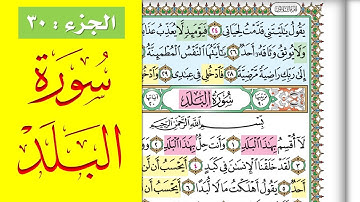 الجزء : ٣٠
سُورَة
البَلَدْ
يَقُولُ يَٰلَيْتَنِي قَدَّمْتُ لِحَيَاتِي ٢٤ فَيَوْمَئِذٍ لَّا يُعَذِّبُ عَذَابَهُۥ
وَلَا يُوثِقُ وَثَاقَهُۥٓ أَحَدٌ ٢٦ يَٰٓأَيَّتُهَا ٱلنَّفْسُ ٱلْمُطْمَئِنَّةُ
إِلَىٰ رَبِّكِ رَاضِيَةً مَّرْضِيَّةً ٢٨ فَٱدْخُلِي فِي عِبَٰدِي ٢٩ وَٱدْخُلِي
سُورَةُ الْبَلَدِ
بِسْمِ ٱللَّهِ ٱلرَّحْمَٰنِ ٱلرَّحِيمِ
لَآ أُقْسِمُ بِهَٰذَا ٱلْبَلَدِ ١ وَأَنتَ حِلٌّۢ بِهَٰذَا ٱلْبَلَدِ ٢
٣ لَقَدْ خَلَقْنَا ٱلْإِنسَٰنَ فِي كَبَدٍ ٤ أَيَحْسَبُ أَن لَّن
أَحَدٌ ٥ يَقُولُ أَهْلَكْتُ مَالًا لُّبَدًا ٦ أَيَحْسَبُ أَن